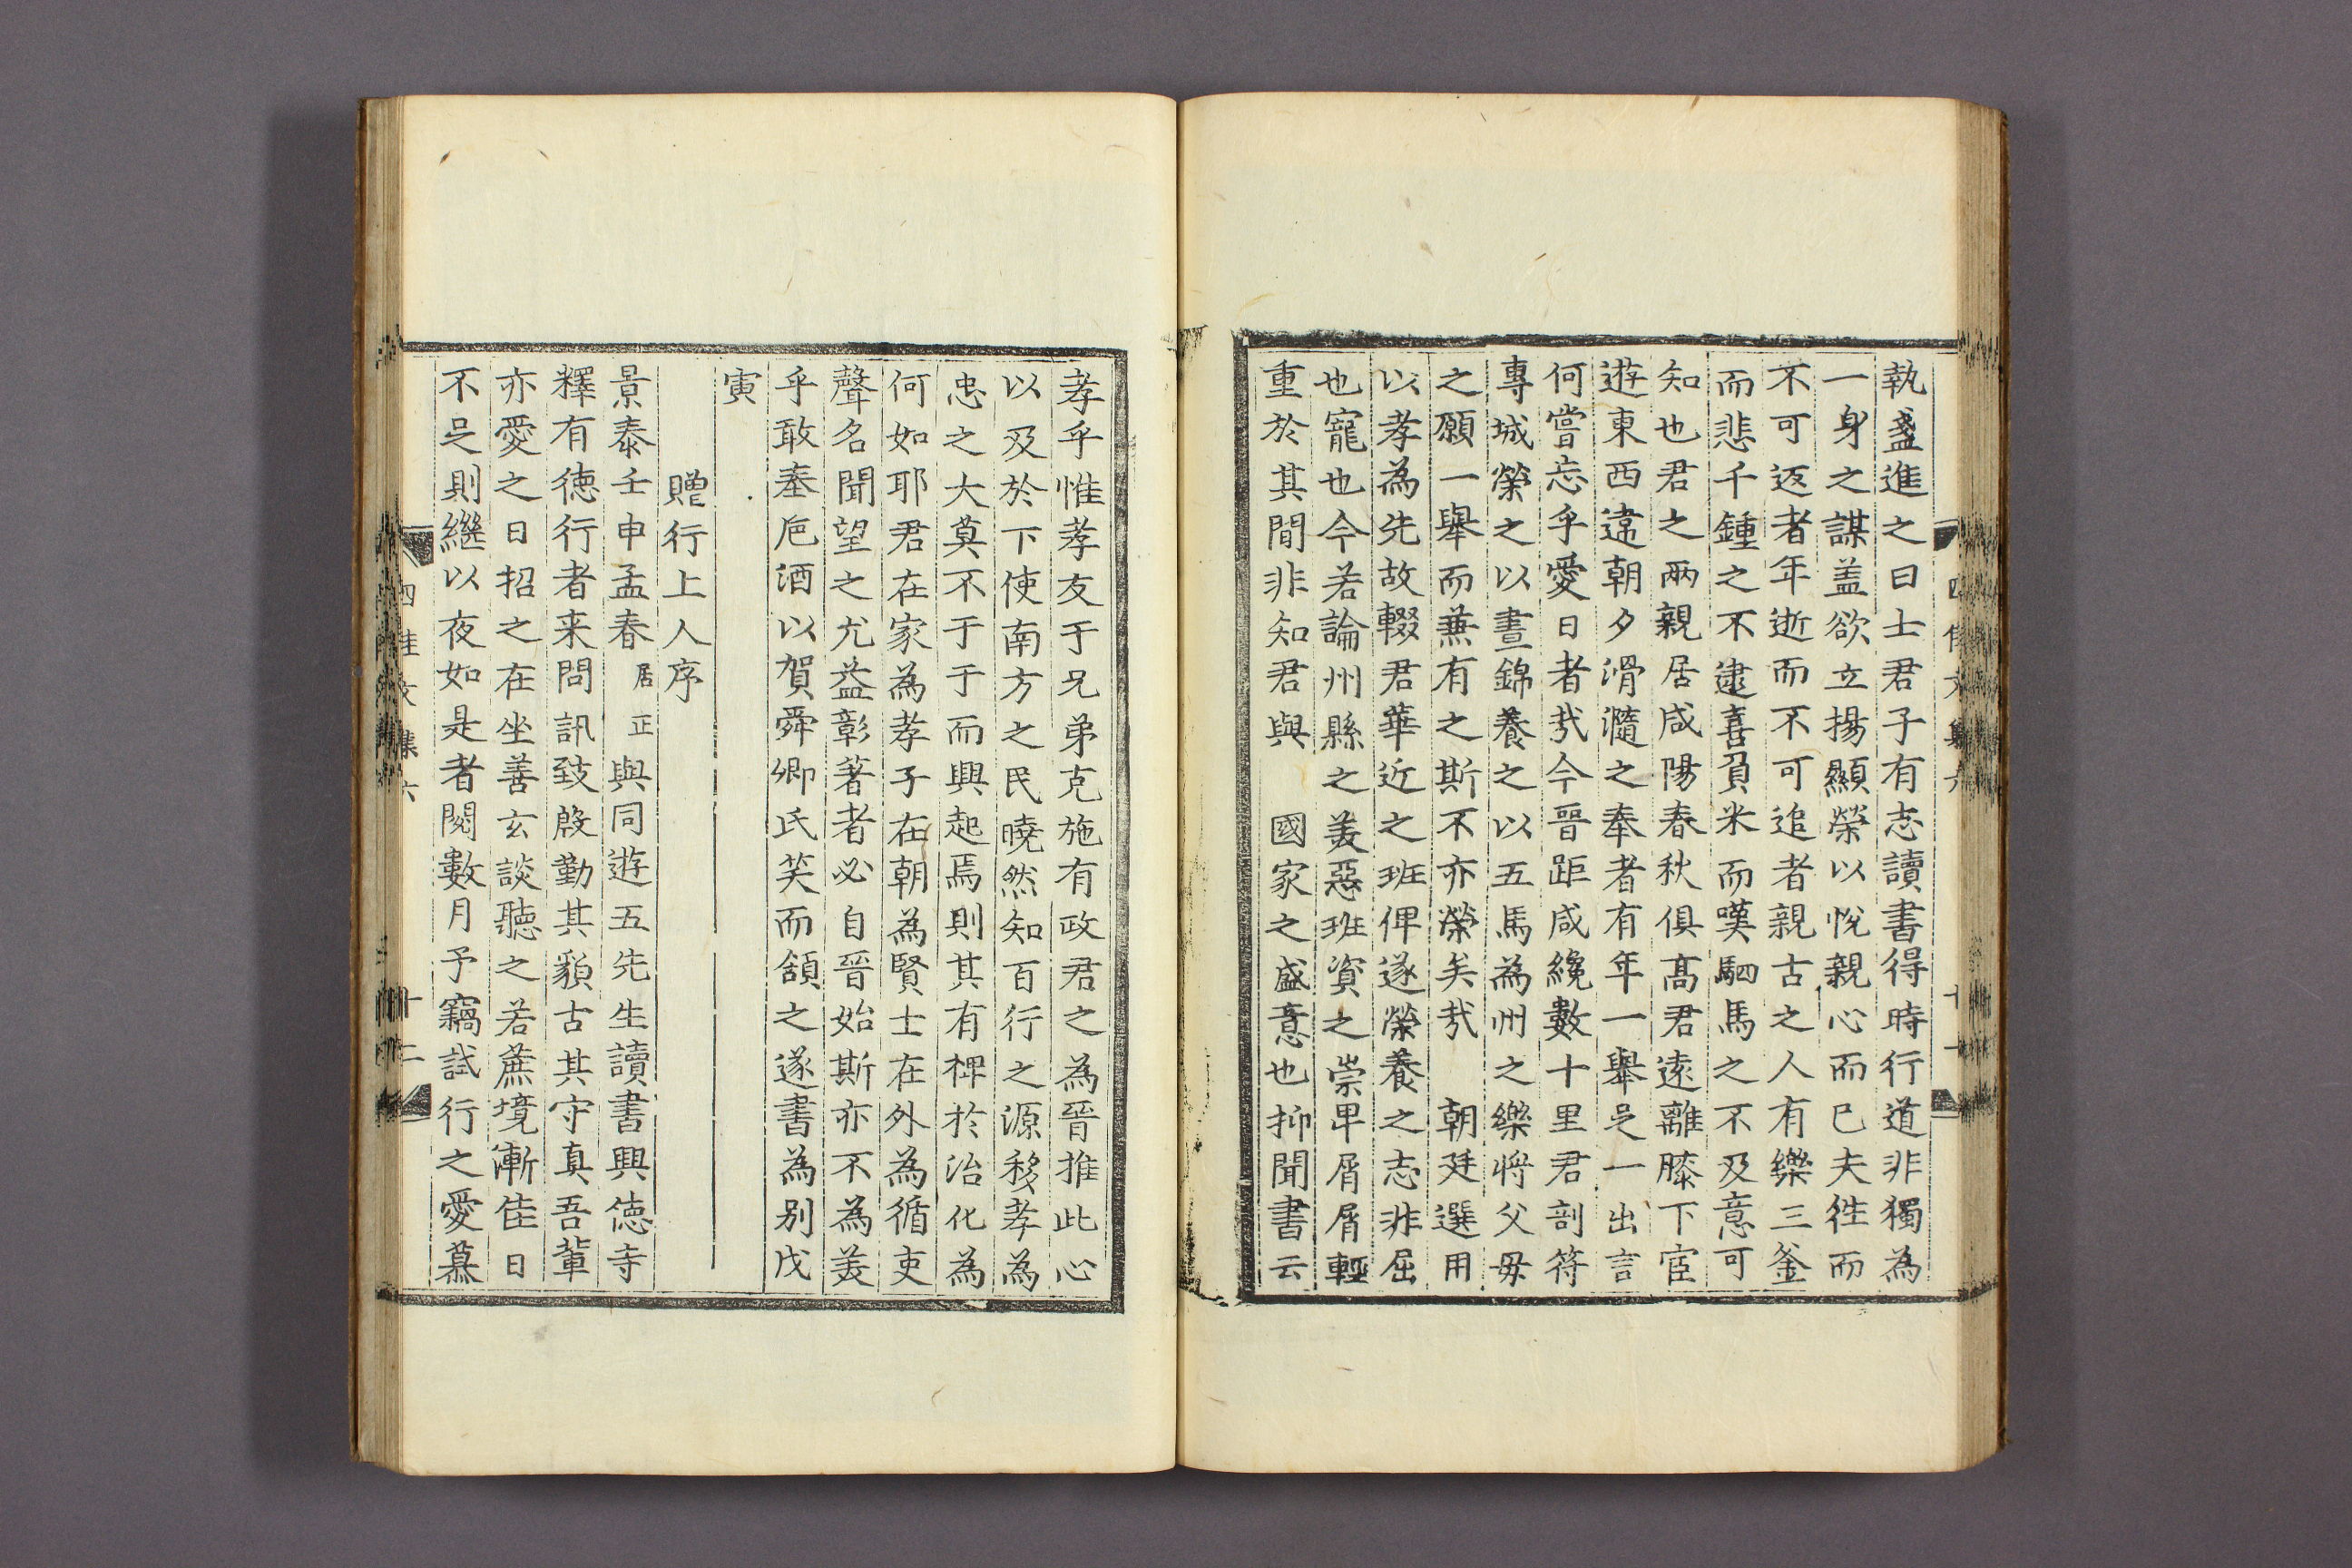 執盞進之曰士君子有志讀書得時行道非獨為
一身之謀盖欲立揚顯榮以悅親心而已夫徃而
不可返者年逝而不可追者親古之人有樂三釜
而悲千鍾之不逮喜負米而嘆駟馬之不及意可
知也君之兩親居咸陽春秋俱髙君遠離膝下宦
遊東西違朝夕滑瀡之奉者有年一舉足一出言
何嘗忘乎愛日者㢤今晉距咸纔數十里君剖符
專城榮之以晝錦養之以五馬為州之樂將父母
之願一舉而兼有之斯不亦榮矣㢤 朝廷選用
以孝為先故輟君華近之班俾遂榮養之志非屈
也寵也今若論州縣之美惡班資之崇卑屑屑輕
重於其間非知君與 國家之盛意也抑聞書云
四佳文集六 十一
孝乎惟孝友于兄弟克施有政君之為晉推此心
以及於下使南方之民曉然知百行之源移孝為
忠之大莫不于于而興起焉則其有裨於治化為
何如耶君在家為孝子在朝為賢士在外為循吏
聲名聞望之尤益彰著者必自晉始斯亦不為美
乎敢奉巵酒以賀舜卿氏笑而頷之遂書為别戊
寅
贈行上人序
景泰壬申孟春居正與同遊五先生讀書興德寺
釋有德行者来問訊致慇勤其貌古其守真吾輩
亦愛之日招之在坐善玄談聽之若蔗境漸佳日
不足則繼以夜如是者閱數月予竊試行之愛慕
四佳文集六 十二